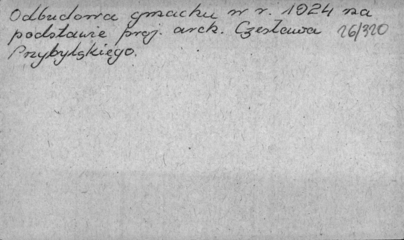 Odbudowa gmachu w r. 1924 na
podstawie proj. arch. Czesława 26/320
Przybylskiego.